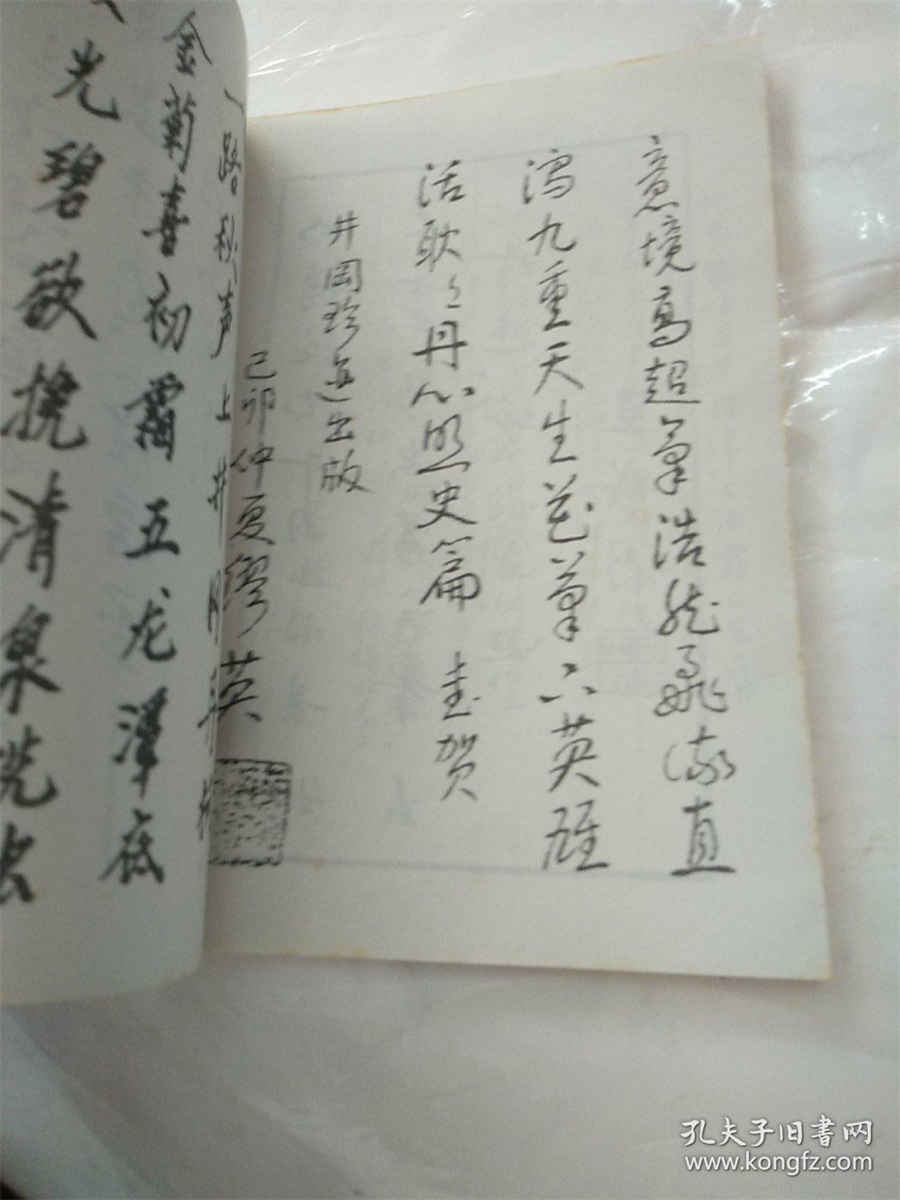 意境高超气浩然飞流直
泻九重天生花笔下英雄
活耿々丹心照史篇 志贺
井冈珍迹出版
己卯仲夏缪英
一路秋声上井冈
金菊喜初霜五龙潭底
光碧欲挽清泉洗去
孔夫子旧书网
www.kongfz.com